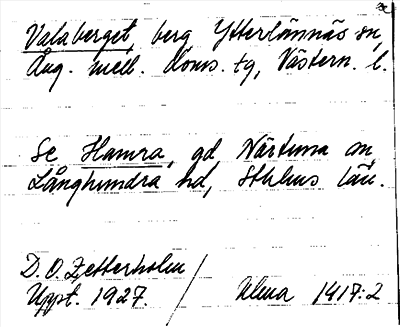 Valaberget, berg Ytterlännäs sn,
Ång. mell. doms. tg, Västern. l.
Se Hamra, gd Närtuna sn
Långhundra hd, Sthlms län.
D. O. Zetterholm
Uppt. 1927. / Ulma 1417:2